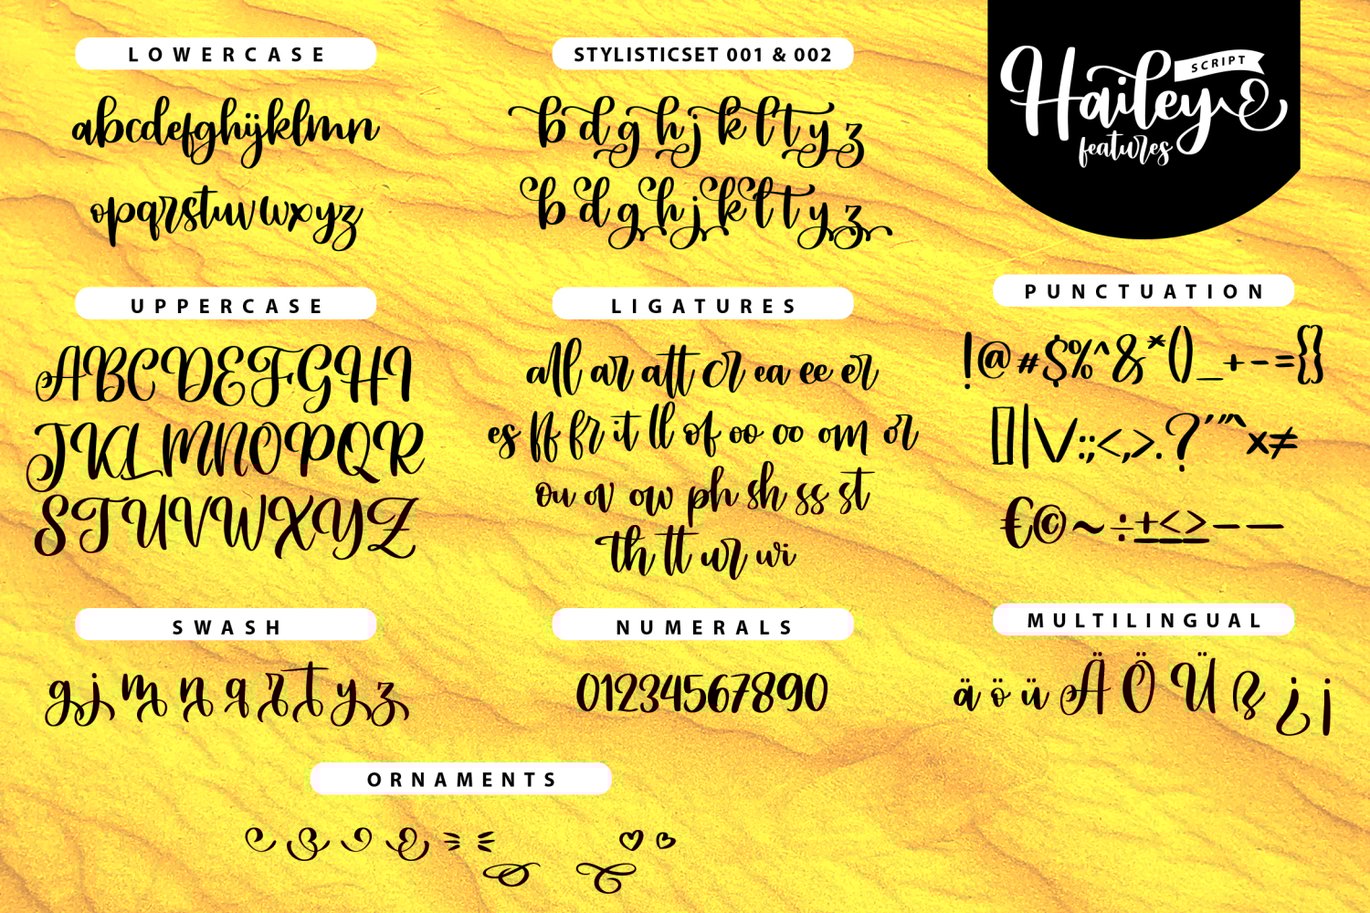 Hailey SCRIPT
features
LOWERCASE
abcdefghijklmn
opqrstuvwxyz
STYLISTICSET 001 & 002
b d g h j k l t y z
b d g h j k l t y z
UPPERCASE
ABCDEFGHI
JKLMNOPQR
STUVWXYZ
LIGATURES
all ar att cr ea ee er
es ff fr it ll of oo co om or
ou ov ow ph sh ss st
th tt ur wi
PUNCTUATION
!@#$%^&*()_+-={}
[]|\/:;<,>.?'"^x≠
€©~÷±≤≥–—
SWASH
g j m n q r t y z
NUMERALS
01234567890
MULTILINGUAL
ä ö ü Ä Ö Ü ß ¿ ¡
ORNAMENTS